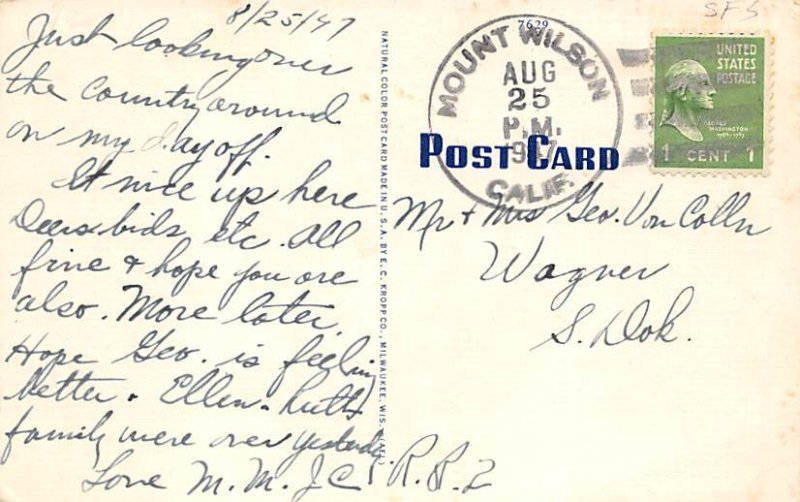 8/25/47
Just looking over
the country around
on my day off.
It nice up here
Deers birds etc. All
fine & hope you are
also. More later.
Hope Geo. is feeling
better. Ellen - Ruth
family were over yesterday
Love M. M. J. C. R. R. 2
NATURAL COLOR POST CARD MADE IN U.S.A. BY E. C. KROPP CO., MILWAUKEE, WIS.
SFS
7629
MOUNT WILSON
AUG
25
P.M.
1947
CALIF.
UNITED
STATES
POSTAGE
GEORGE
WASHINGTON
1 CENT 1
POST CARD
Mr + Mrs Geo. Von Colln
Wagner
S. Dak.